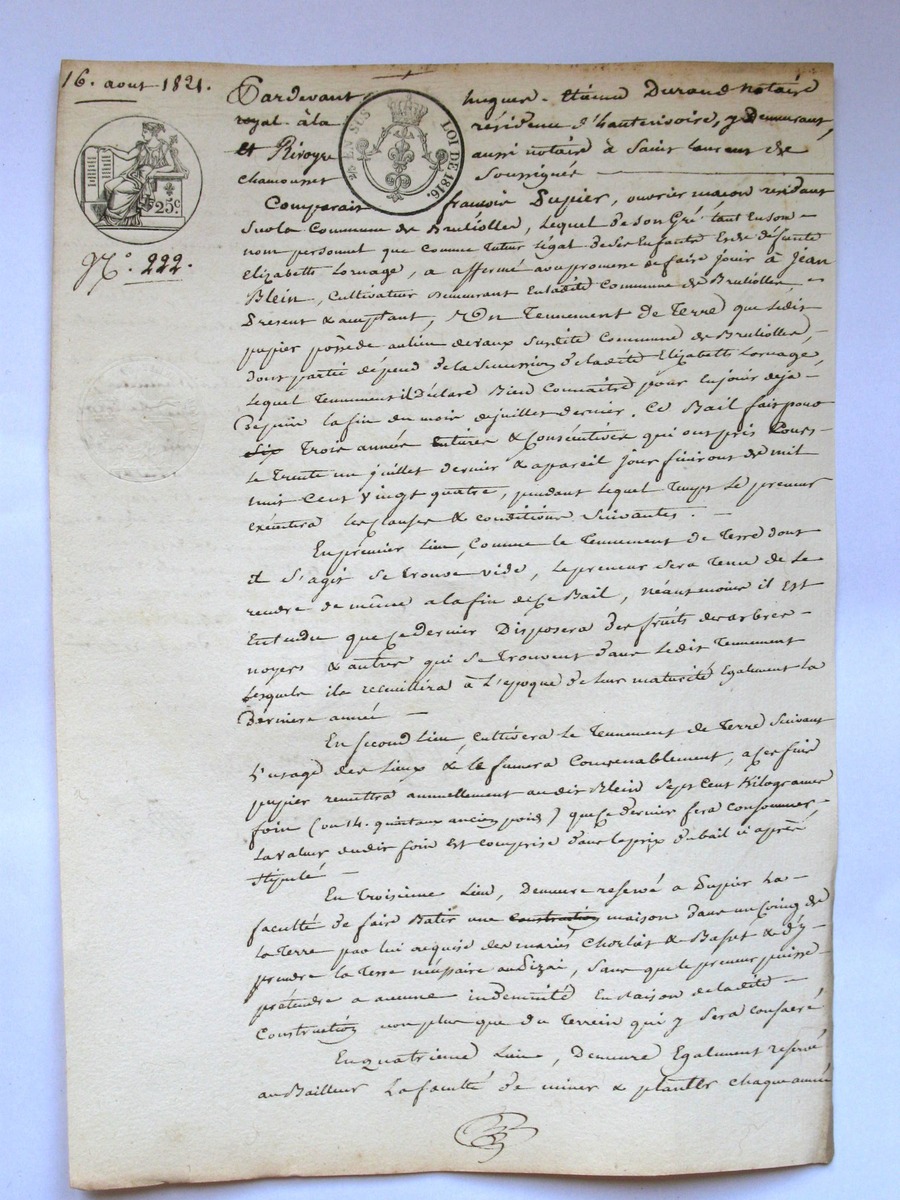 16. aout 1821.
Pardevant hugues - Etienne Durand notaire
royal à la résidence d'hauterivoire, y Demeurant,
et Rivoyre aussi notaire à Saint Laurent de
chamousset Soussignés
EN SUS LOI DE 1816.
25c
N.° 222.
Comparait françois Dupier, ouvrier maçon résidant
Sur la Commune de Brulliolle, Lequel de son Gré tant En son
nom personnel que comme tuteur légal de Ses Enfants Et de défunte
Elizabeth Lornage, a affermé avec promesse de faire jouir à Jean
Blein, Cultivateur Demeurant En ladite Commune de Brulliolle,
Present & acceptant, Un Tennement de Terre que ledit
pupier possède au lieu de vaux Susdite Commune de Brulliolle,
dont partie dépend de la Succession de ladite Elizabeth Lornage,
Lequel Tennement il Déclare Bien Connaître pour En jouir déjà
Depuis la fin du mois de juillet dernier. Ce Bail fait pour
Six Trois années Entières & Consécutives qui ont pris Cours
Le Trente un juillet dernier & a pareil jour finiront de mil
huit Cent Vingt quatre, pendant lequel Temps le preneur
executera les Clauses & conditions Suivantes.
En premier Lieu, Comme le Tennement de Terre dont
il S'agit Se trouve vide, le preneur Sera Tenu de Le
rendre de même a la fin de Ce Bail, néantmoins il est
Entendu que Ce dernier Disposera des fruits des arbres
noyers & autres qui Se trouvent dans ledit Tennement
Lesquels il recueillira à L'époque de leur maturité Egalement La
Derniere année
En Second Lieu, Cultivera le Tennement de Terre Suivant
L'usage des Lieux & le fumera Convenablement, a Ces fins
pupier remettra annuellement audit Blein Sept Cent Kilogrames
foin (ou 14. quintaux ancien poids) que Ce dernier fera Consommer,
La valeur dudit foin est comprise dans le prix du bail ci après
Stipulé
En Troisieme Lieu, Demeure reservé a Dupier La
faculté de fair Batir une construction maison dans un Coing de
La Terre par lui acquise des mariés Chorliet & Basset & d'y
prendre la Terre nécessaire au Pizai, Sans que le preneur puisse
prétendre a aucune indemnité En Raison de ladite
Construction non plus que du Terrein qui y Sera Consacré
En quatrieme Lieu, Demeure Egalement reservé
au Bailleur La faculté de miner & planter chaque année